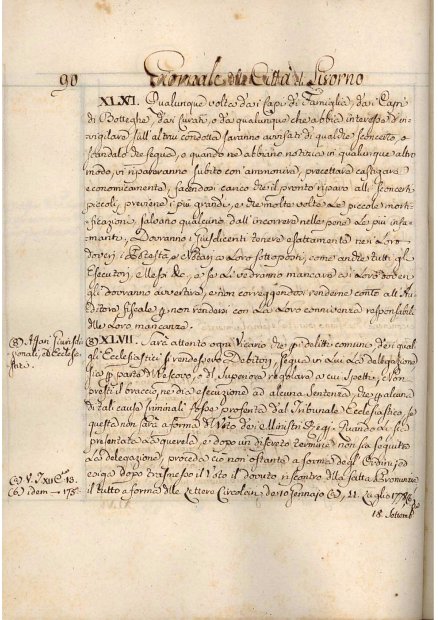 90 Giornale della Città di Livorno
XLVI. Qualunque volta dai Capi di Famiglia, dai Capi
di Botteghe, dai Curati, o da qualunque che abbia interesse d'in-
vigilare sull'altrui condotta saranno avvisati di qualche sconcerto, o
scandalo che segua, o quando ne abbiano notizia in qualunque altro
modo, vi ripareranno subito con ammonire, precettare castigare
economicamente, facendosi carico che il pronto riparo alli sconcerti
piccoli, previene i più grandi, e che molte volte le piccole morti-
ficazioni salvano qualcuno dall'incorrere nelle pene le più infa-
manti. Dovranno i Giusdicenti tenere esattamente nei Loro
doveri i e Notari a Loro sottoposti, come anche tutti gli
Esecutori, e Messi &c., e se li vedranno mancare ai Loro doveri
gli dovranno avvertire, e non correggendosi renderne conto all'Au-
ditore Fiscale p. non rendersi con la Loro connivenza responsabili
delle Loro mancanze.
(a) Affari Giurisdi-
zionali, ed Ecclesia-
stici.
(a) XLVII. Sarà attento ogni Vicario che p. delitti comuni dei quali
gl'Ecclesiastici si rendessero Debitori, segua in Lui la delegazione
p. parte del Vescovo, o del Superiore regolare a cui spetti, Non
presti il braccio, nè dia esecuzione ad alcuna Sentenza, che p. alcuna
di tali cause Criminali fosse proferita dal Tribunale Ecclesiastico, se
questa non sarà a forma del Voto dei Ministri Regi. Quando gli sia
presentata la querela, e dopo un discreto termine non sia seguita
la delegazione, proceda ciò non ostante a forma degl'Ordini, ed
esiga dopo trasmesso il Voto il dovuto riscontro della fatta Pronunzia
il tutto a forma delle Lettere Circolari de 10 Gennaio (a), 11. Luglio 1778
18. Settemb.
(a) V. T. XII C. 13.
(b) idem — 175.